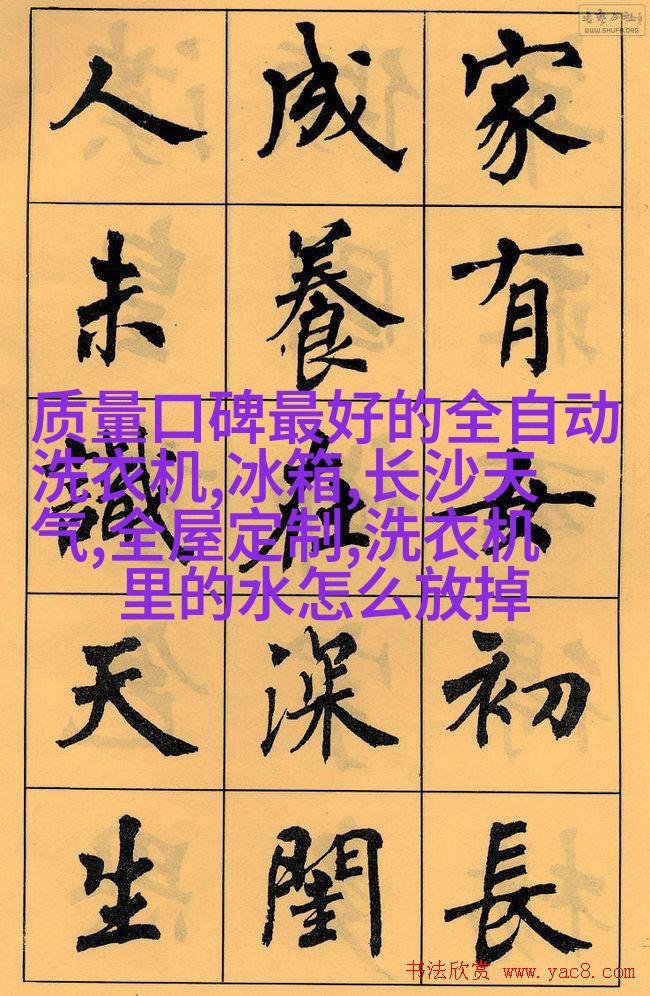 WWW.SHUFA.ORG
家有女初長
成養在深閨
人未識天生
质量口碑最好的全自动
洗衣机,冰箱,长沙天
气,全屋定制,洗衣机
里的水怎么放掉
书法欣赏 www.yac8.com